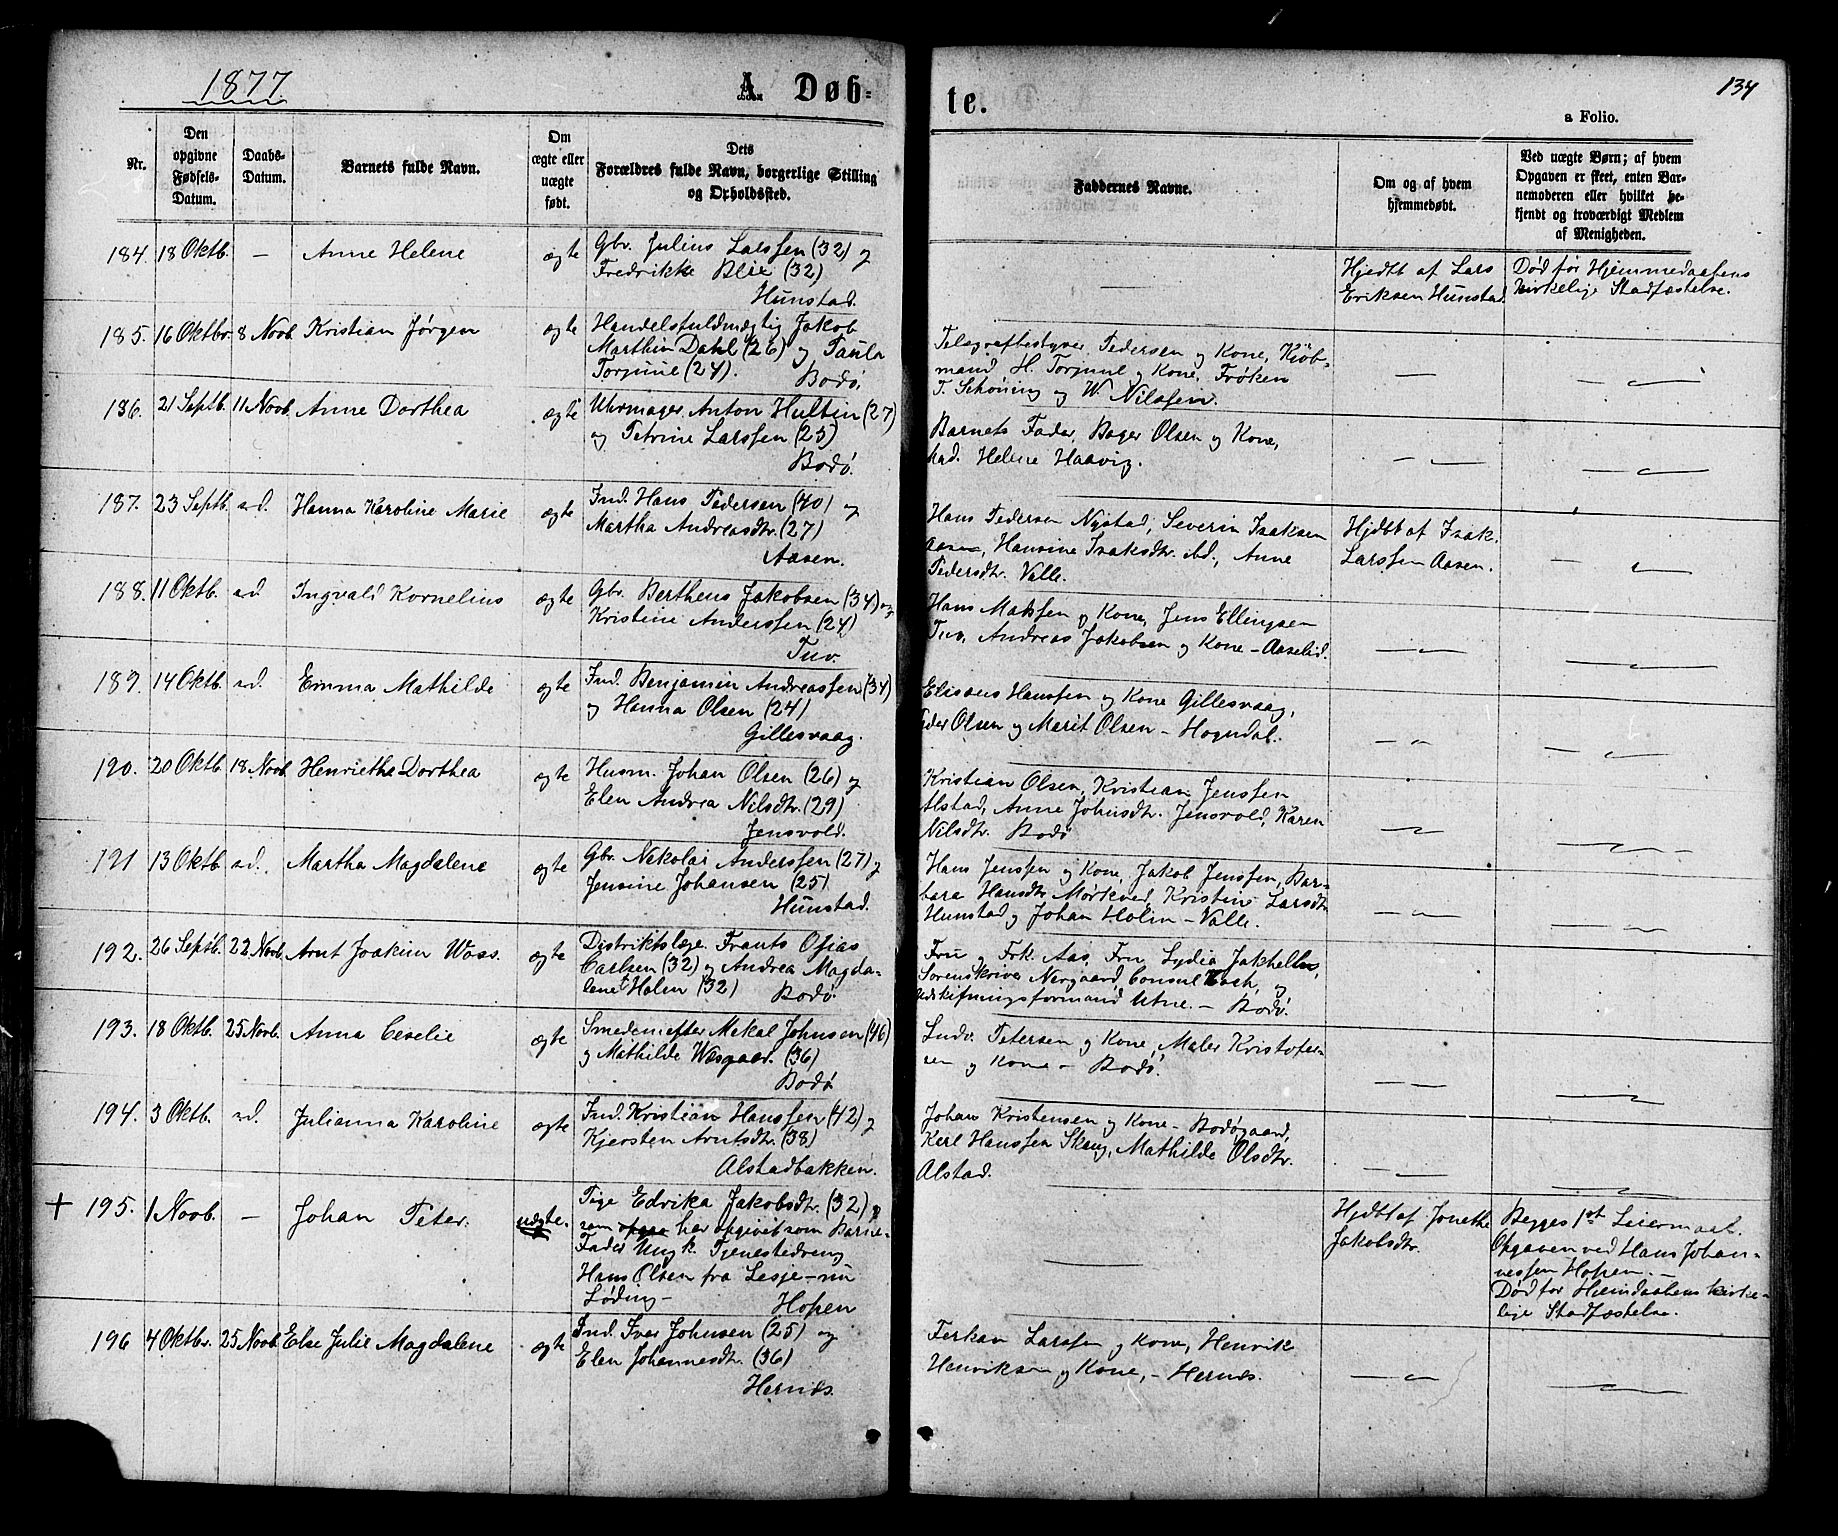 1877.
A. Døb-
Nr.
Den opgivne Fødsels-Datum.
Daabs-Datum.
Barnets fulde Navn.
Om ægte eller uægte født.
Dets Forældres fulde Navn, borgerlige Stilling og Opholdssted.
184. 18 Oktb. — Anne Helene ægte Gbr. Julius Larssen (32) og
Fredrikke Blix (32)
Hunstad.
185. 16 Oktbr. 8 Novb. Kristian Jørgen ægte Handelsfuldmægtig Jakob
Marthin Dahl (26) og Paula
Torjune (24).
Bodø.
186. 21 Septb. 11 Novb. Anne Dorthea ægte Uhrmager Anton Hultin (27)
og Petrine Larssen (25)
Bodø.
187. 23 Septb. ad. Hanna Karoline Marie ægte Ind. Hans Pedersen (40) og
Martha Andreasdtr. (27)
Aasen.
188. 11 Oktb. ad. Ingvald Kornelius ægte Gbr. Bertheus Jakobsen (34) og
Kristine Anderssen (24)
Tuv.
189. 14 Oktb. ad. Emma Mathilde ægte Ind. Benjamin Andreassen (34)
og Hanna Olsen (24)
Gillesvaag.
190. 20 Oktb. 18 Novb. Henrietha Dorthea ægte Husm. Johan Olsen (26) og
Elen Andrea Nilsdtr. (29)
Jensvold.
191 13 Oktb. ad. Martha Magdalene ægte Gbr. Nikolai Anderssen (27) og
Jensine Johansen (25)
Hunstad.
192. 26 Septb. 22 Novb. Arnt Joakim Waas. ægte Distriktslæge Frants Osias
Carlsen (32) og Andrea Magda-
lene Holm (32) Bodø.
193. 18 Oktb. 25 Novb. Anna Ceselie ægte Smedemester Mekal Johnsen (46)
og Mathilde (36)
Bodø
194. 3 Oktb. ad. Julianna Karoline ægte Ind. Kristian Hanssen (42) og
Kjersten Arntsdtr. (38)
Alstadbakken.
+ 195. 1 Novb. — Johan Peter. uægte. Pige Edvika Jakobsdtr. (32)
som har opgivet som Barne-
Fader Ungk. Tjenestedreng
Hans Olsen fra Lesje - nu
Løding -
Hopen
196 4 Oktbr. 25 Novb. Else Julie Magdalene ægte Ind. Iver Johnsen (25) og
Elen Johannesdtr. (36)
Hernes.
te.
134
a Folio.
Faddernes Navne.
Om og af hvem hjemmedøbt.
Ved uægte Børn; af hvem
Opgaven er skeet, enten Bar-
nemoderen eller hvilket be-
kjendt og troværdigt Medlem
af Menigheden.
— Hjdbt af Lars
Eriksen Hunstad.
Død før Hjemmedaabens
kirkelige Stadfæstelse.
Telegrafbestyrer Pedersen og Kone, Kjøb-
mand H. Torjune og Kone, Frøken
T. Schøning og W. Nilssen.
Barnets Fader, Bager Olsen og Kone,
Mad. Helene Haavig.
Hans Pedersen Nystad, Severin Isaksen
Aasen, Hansine Isaksdtr. ibd., Anne
Pedersdtr. Valle.
Hjdbt af Isak
Larssen Aasen.
Hans Matssen og Kone, Jens Ellingsen
Tuv, Andreas Jakobsen og Kone - Aaselid.
Elisæus Hanssen og Kone Gillesvaag,
Peder Olsen og Marit Olsen - Hogndal.
Kristian Olsen, Kristian Jenssen
Alstad, Anne Johnsdtr. Jensvold, Karen
Nilsdtr. Bodø
Hans Jenssen og Kone, Jakob Jenssen, Bar-
bara Hansdtr. Mørkved, Kristine Larsdtr.
Hunstad og Johan Holm - Valle.
Fru og Frk. Aas, Fru Lydia Jakhelln,
Sorenskriver Nergaard, Consul Koch, og
Udskiftningsformand Utne. - Bodø.
Ludv. Petersen og Kone, Maler Kristofer-
sen og Kone - Bodø.
Johan Kristensen og Kone - Bodøgaard,
Karl Hanssen Skaug, Mathilde Olsdtr.
Alstad.
— Hjdbt af Jonetha
Jakobsdtr.
Begges 1st Leiermaal.
Opgaven ved Hans Johan-
nessen Hopen. -
Død før Hjemdaabens kirke-
lige Stadfæstelse.
Larssen og Kone, Henrik
Henriksen og Kone, - Hernes.